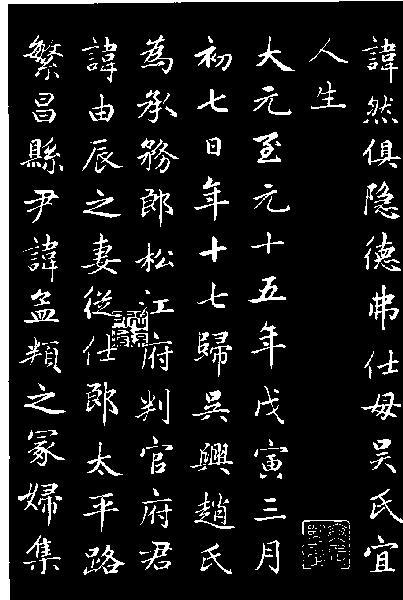 諱然俱隐德弗仕母吴氏宜
人生
大元至元十五年戊寅三月
初七日年十七歸吴興趙氏
為承務郎松江府判官府君
諱由辰之妻從仕郎太平路
繁昌縣尹諱孟頖之冢婦集